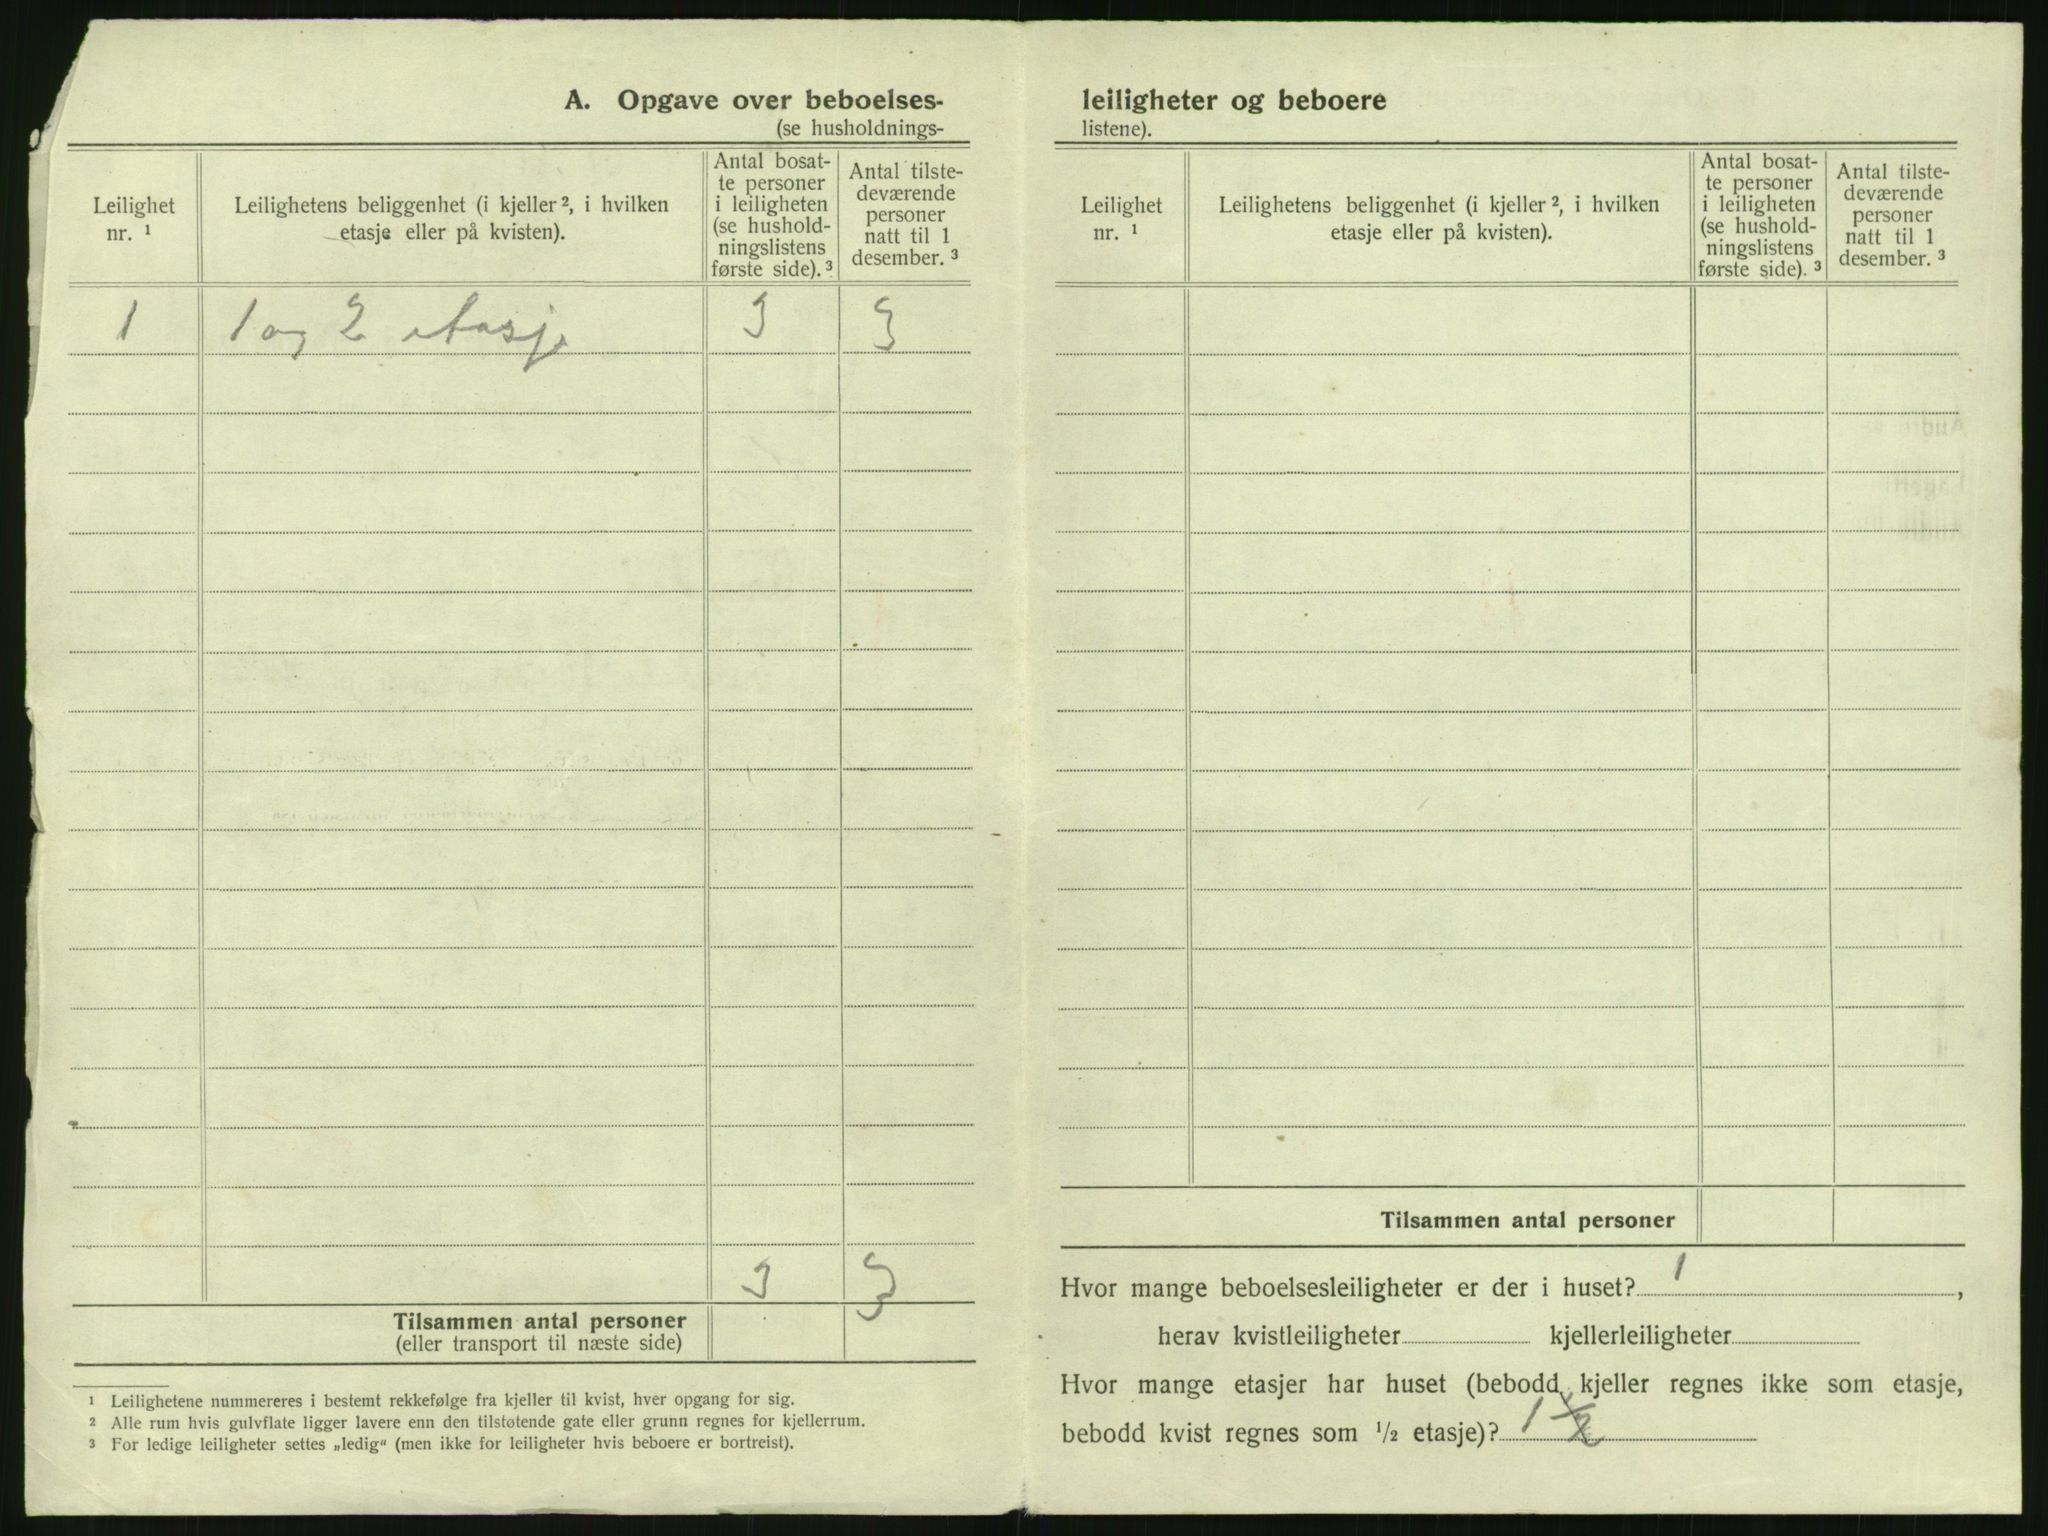 A. Opgave over beboelses-
(se husholdnings-
Leilighet nr. ¹
Leilighetens beliggenhet (i kjeller ², i hvilken etasje eller på kvisten).
Antal bosat-
te personer
i leiligheten
(se hushold-
ningslistens
første side). ³
Antal tilste-
deværende
personer
natt til 1
desember. ³
1 1 og 2 etasje 3 3
3 3
Tilsammen antal personer
(eller transport til næste side)
¹ Leilighetene nummereres i bestemt rekkefølge fra kjeller til kvist, hver opgang for sig.
² Alle rum hvis gulvflate ligger lavere enn den tilstøtende gate eller grunn regnes for kjellerrum.
³ For ledige leiligheter settes „ledig“ (men ikke for leiligheter hvis beboere er bortreist).
leiligheter og beboere
listene).
Leilighet nr. ¹
Leilighetens beliggenhet (i kjeller ², i hvilken etasje eller på kvisten).
Antal bosat-
te personer
i leiligheten
(se hushold-
ningslistens
første side). ³
Antal tilste-
deværende
personer
natt til 1
desember. ³
Tilsammen antal personer
Hvor mange beboelsesleiligheter er der i huset? 1,
herav kvistleiligheter kjellerleiligheter
Hvor mange etasjer har huset (bebodd kjeller regnes ikke som etasje,
bebodd kvist regnes som ½ etasje)? 1 ½